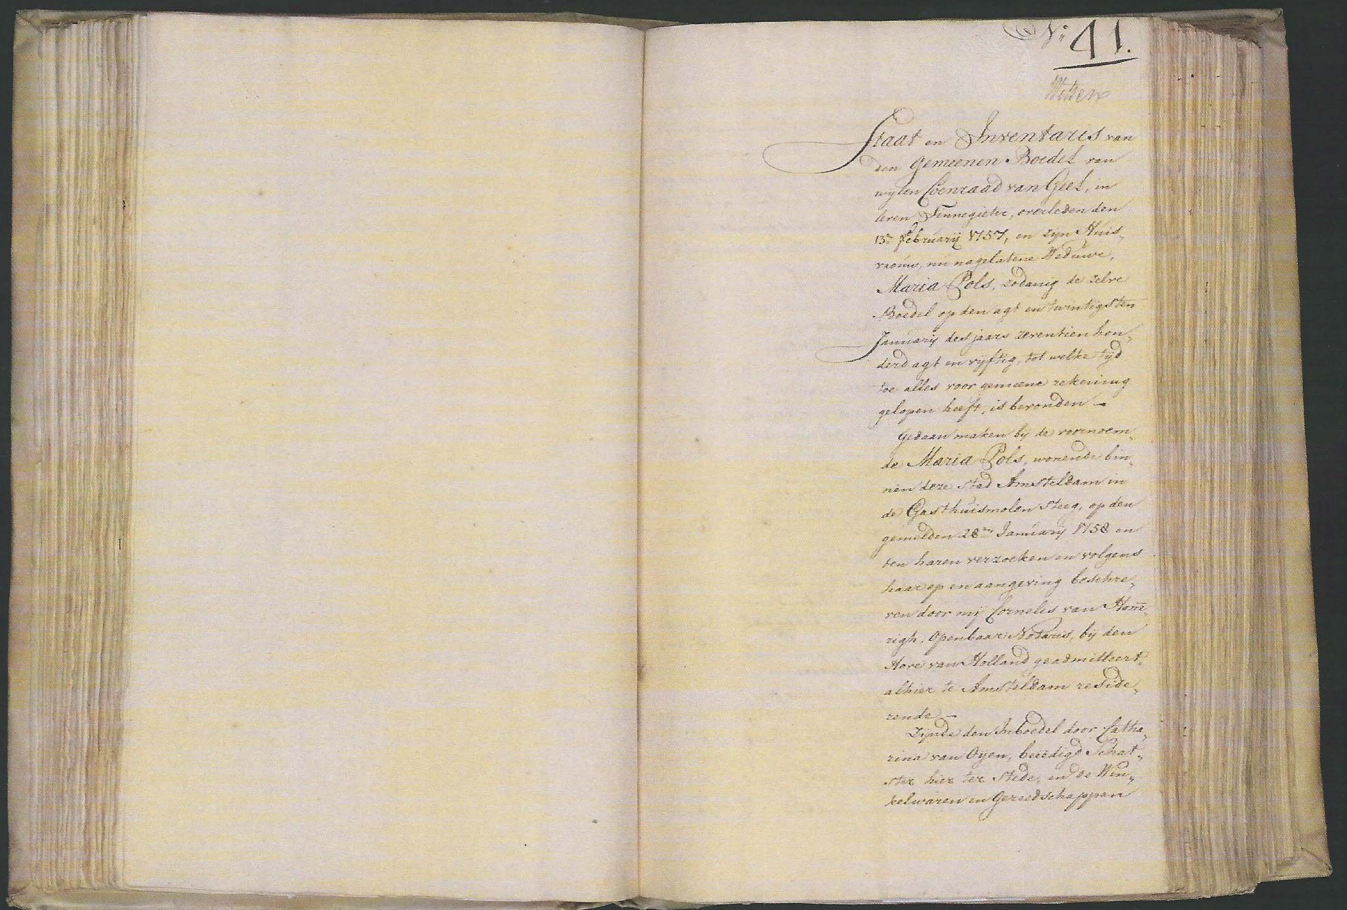 N:o 41.
Staat en Inventaris van
den Gemeenen Boedel van
wylen Coenraad van Geel, in
leven Tinnegieter, overleden den
13e february 1757, en zyn Huis„
vrouw, nu nagelatene Weduwe,
Maria Pols, zodanig de zelve
Boedel op den agt en twintigsten
January des jaars zeventien hon„
derd agt en vyftig, tot welke tyd
toe alles voor gemeene rekening
gelopen heeft, is bevonden —
Gedaan maken bij de voornoem„
de Maria Pols, wonende bin„
nen deze stad Amsteldam in
de Gasthuismolen steeg, op den
gemelden 28sten January 1758 en
ten haren verzoeken en volgens
haar op en aangeving beschre„
ven door mij Cornelis van Hom̅e„
righ, Openbaar Notaris, bij den
Hove van Holland geadmitteert,
alhier te Amsteldam reside„
rende —
Zijnde den Inboedel door Catha„
rina van Oyen, beëdigde Schat„
ster hier ter stede, en de Win„
kelwaren en Gereedschappen